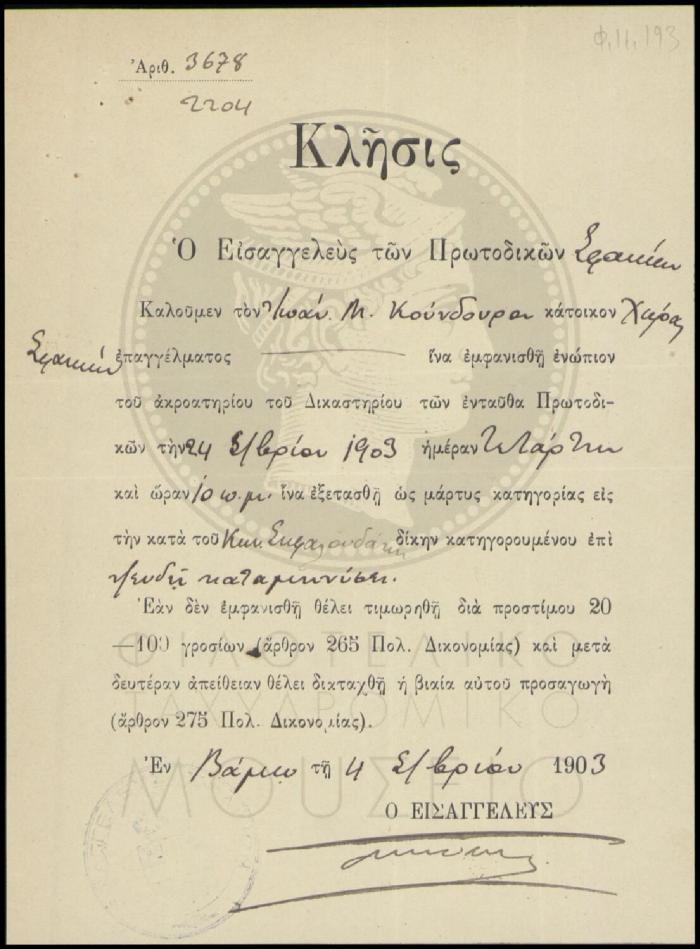 Φ.11.193
Ἀριθ. 3678
2204
Κλῆσις
Ὁ Εἰσαγγελεὺς τῶν Πρωτοδικῶν Σφακίων
Καλοῦμεν τὸν Ἰωάν. Μ. Κούνδουρον κάτοικον Χώρας
Σφακίων ἐπαγγέλματος ἵνα ἐμφανισθῇ ἐνώπιον
τοῦ ἀκροατηρίου τοῦ Δικαστηρίου τῶν ἐνταῦθα Πρωτοδι-
κῶν τὴν 24 Σ/βρίου 1903 ἡμέραν Τετάρτην
καὶ ὥραν 10 π.μ. ἵνα ἐξετασθῇ ὡς μάρτυς κατηγορίας εἰς
τὴν κατὰ τοῦ δίκην κατηγορουμένου ἐπὶ
ψευδῇ καταμηνύσει.
Ἐὰν δὲν ἐμφανισθῇ θέλει τιμωρηθῇ διὰ προστίμου 20
—100 γροσίων (ἄρθρον 265 Πολ. Δικονομίας) καὶ μετὰ
δευτέραν ἀπείθειαν θέλει διαταχθῇ ἡ βιαία αὐτοῦ προσαγωγὴ
(ἄρθρον 275 Πολ. Δικονομίας).
Ἐν Βάμῳ τῇ 4 Σ/βρίου 1903
Ο ΕΙΣΑΓΓΕΛΕΥΣ
ΦΙΛΟΤΕΛΙΚΟ
ΤΑΧΥΔΡΟΜΙΚΟ
ΜΟΥΣΕΙΟ